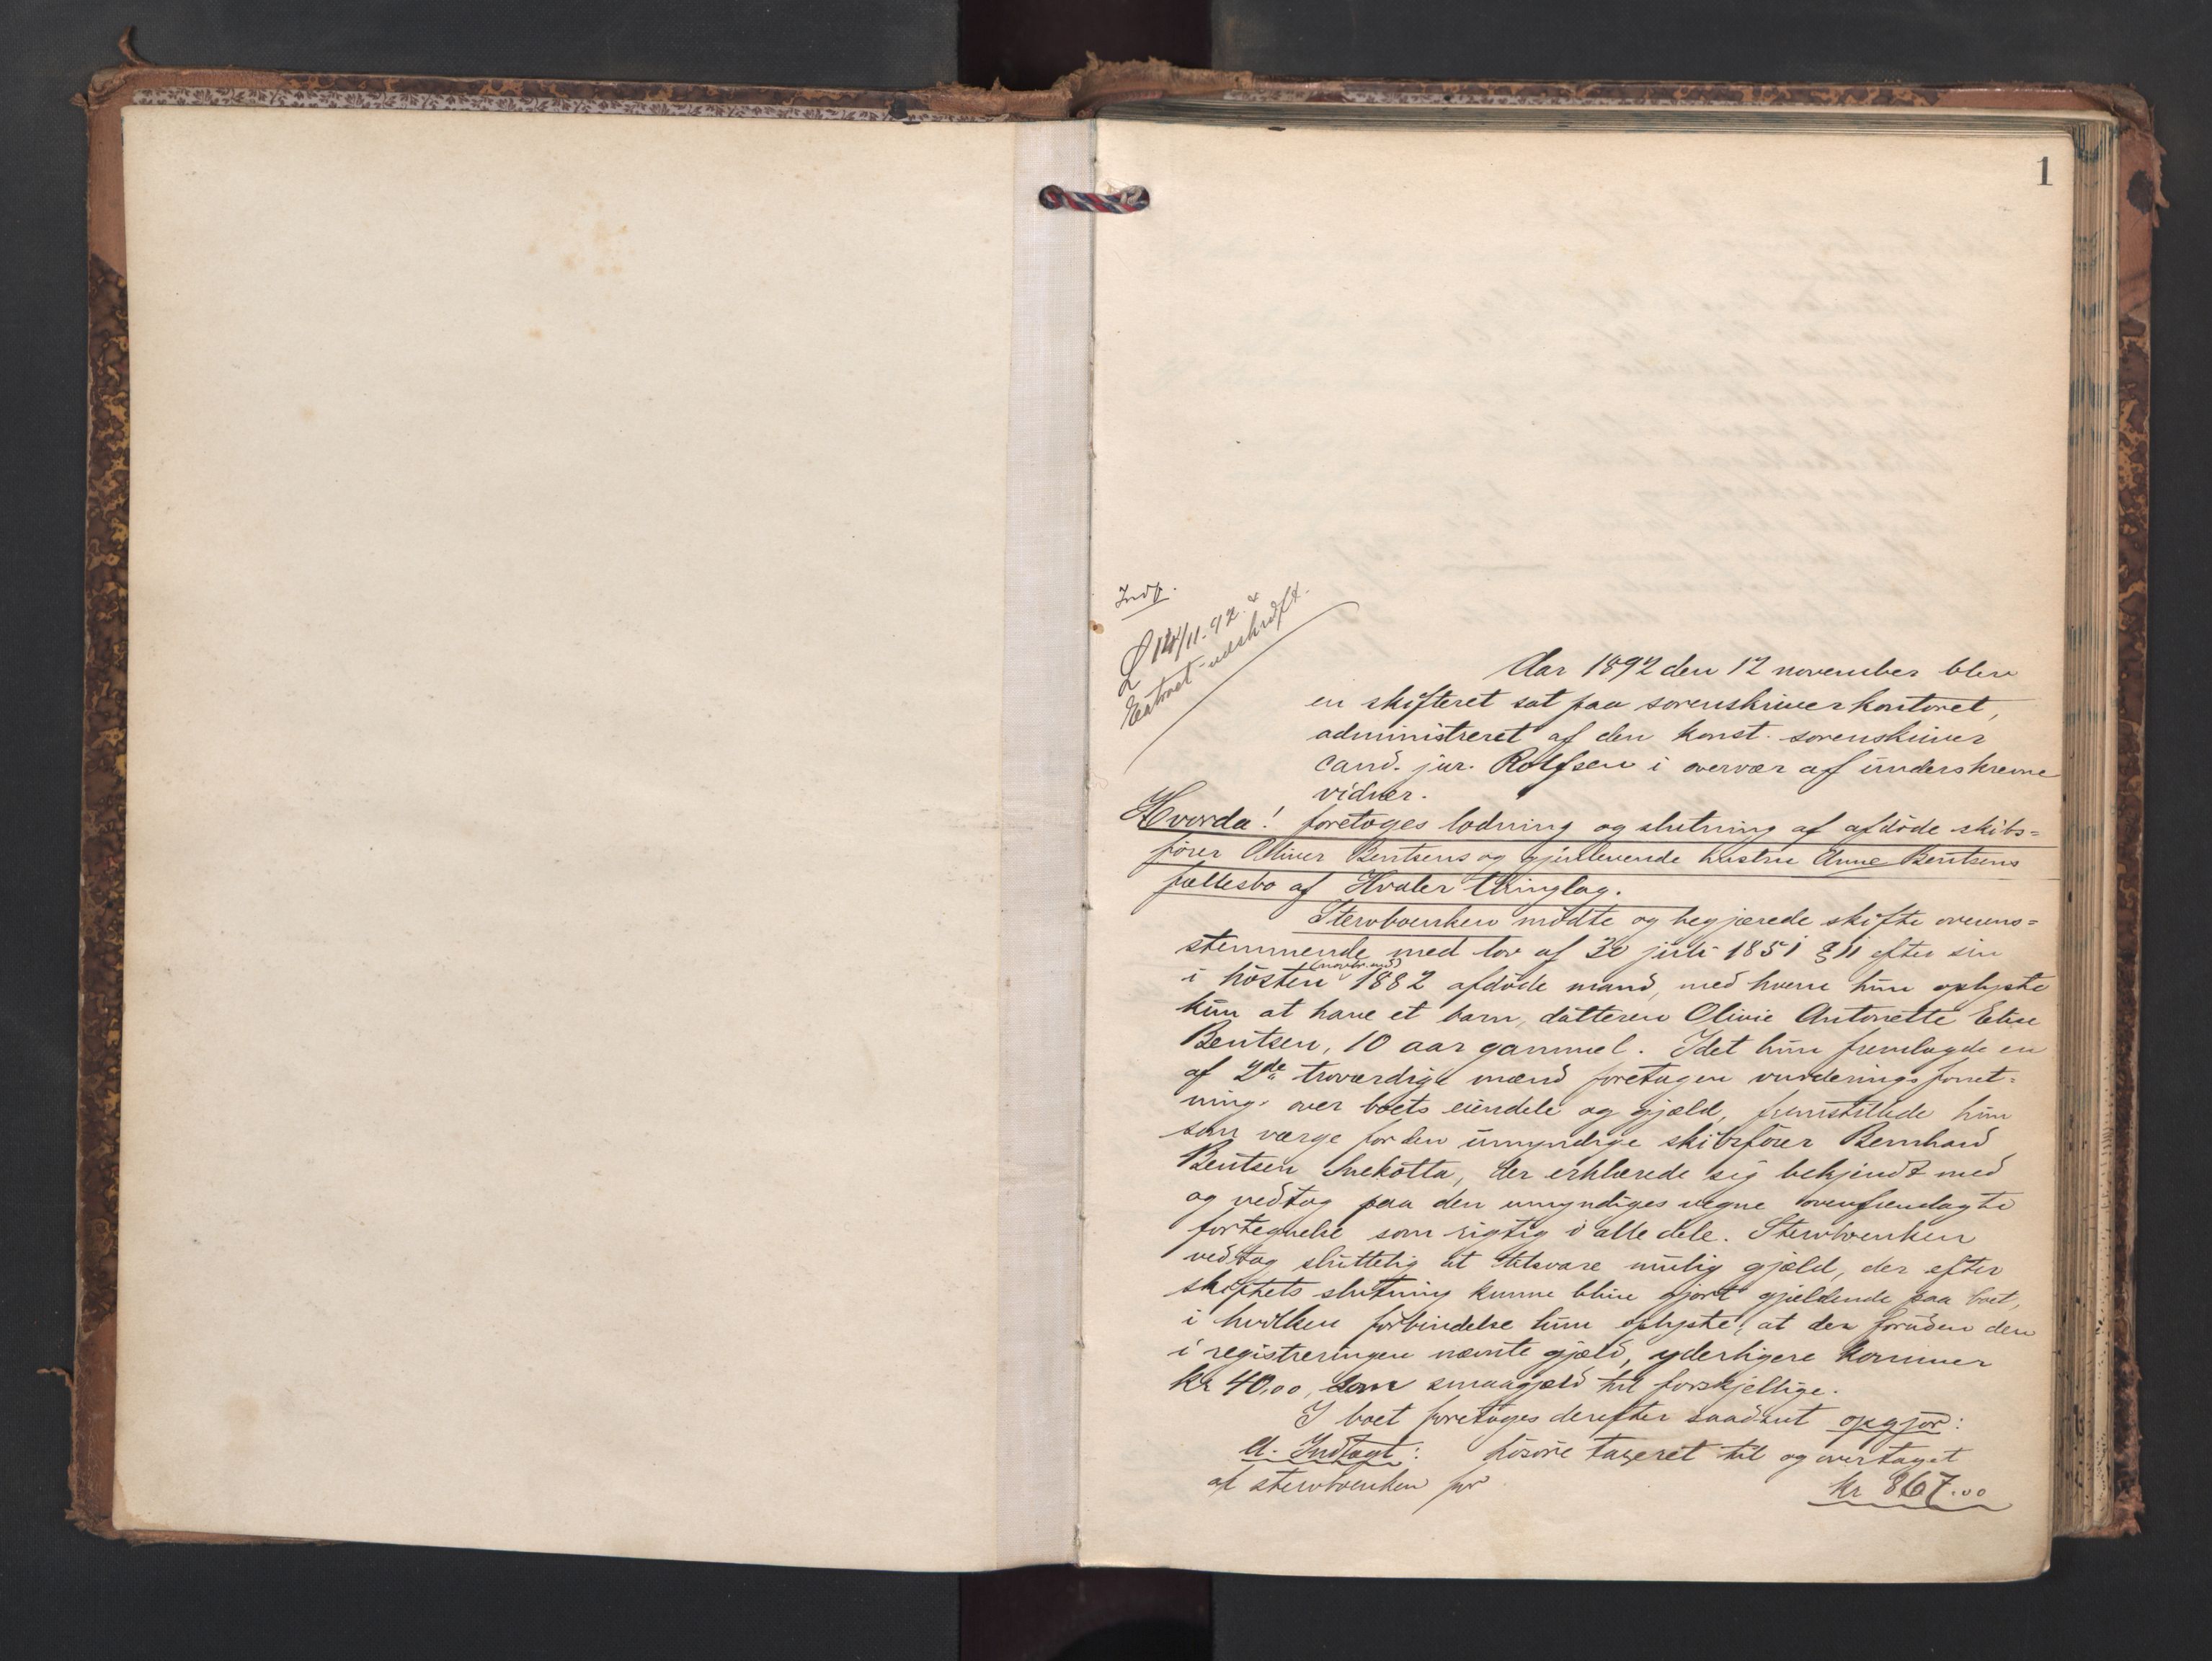 1
Indf.
L 14/11.92. &
Extract-udskrift.
Aar 1892 den 12 november blev
en skifteret sat paa sorenskriverkontoret,
administreret af den konst. sorenskriver
Cand. jur. Rolfsen i overvær af underskrevne
vidner.
Hvorda! foretoges lodning og slutning af afdöde skibs=
förer Oliver Bentsens og gjenlevende hustru Anne Bentsens
fællesbo af Hvaler thinglag.
Stervboenken mödte og begjærede skifte overens=
stemmende med lov af 30 juli 1851 § 11 efter sin
i hösten (novbr. md) 1882 afdöde mand, med hvem hun oplyste
kun at have et barn, datteren Olivie Antonette Elise
Bentsen, 10 aar gammel. Idet hun fremlagde en
af 2de troværdige mænd foretagen vurderingsforret=
ning over boets eiendele og gjæld, fremstillede hun
som værge for den umyndige skibsförer Bernhard
Bentsen, der erklærede sig bekjendt med
og vedtog paa den umyndiges vegne ovenfremlagte
fortegnelse som rigtig i alle dele. Stervboenken
vedtog sluttelig at tilsvare mulig gjæld, der efter
skiftets slutning kunne blive gjort gjældende paa boet,
i hvilken forbindelse hun oplyste, at der foruden den
i registreringen nævnte gjæld, yderligere kommer
kr 40,00, som smaagjæld til forskjellige.
I boet foretoges derefter saadant opgjör:
A. Indtægt: lösöre taxeret til og overtaget
af stervboenken for kr 867.00